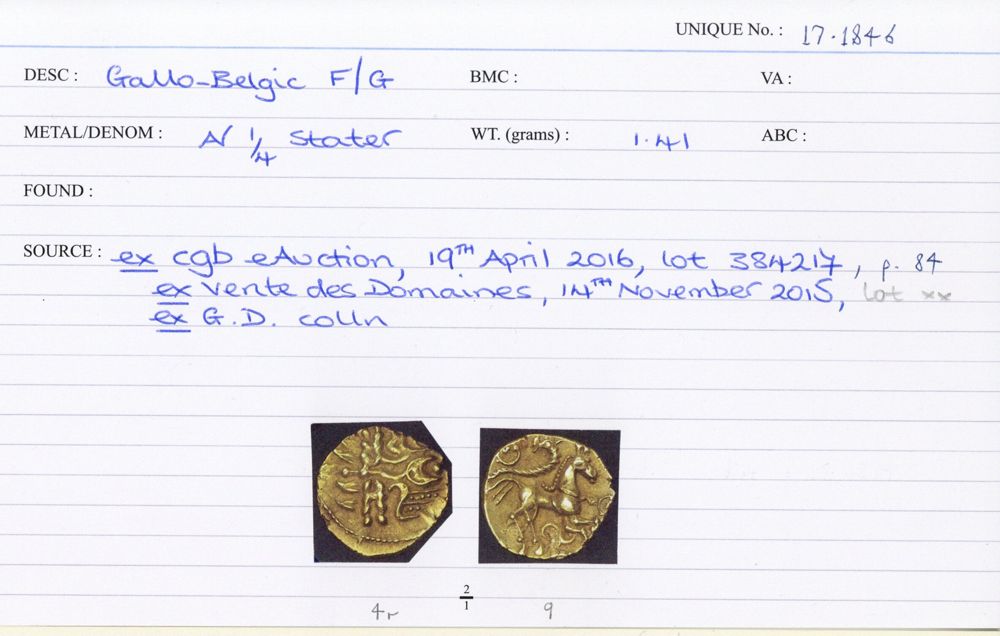 UNIQUE No. : 17.1846
DESC : Gallo-Belgic F/G BMC : VA :
METAL/DENOM : AV 1/4 Stater WT. (grams) : 1.41 ABC :
FOUND :
SOURCE : ex cgb eAuction, 19TH April 2016, lot 384217, p. 84
ex Vente des Domaines, 14TH November 2015, lot xx
ex G.D. colln
2/1
4r 9